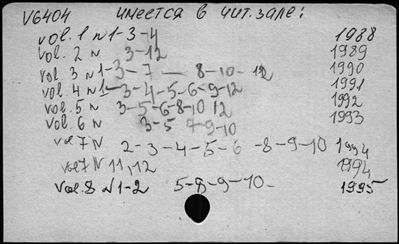 V6404 имеется в чит. зале:
vol. 1 N 1-3-4 1988
vol. 2 N 3-12 1989
vol. 3 N 1-3-7 — 8-10-12 1990
vol. 4 N 1-3-4-5-6-9-12 1991
vol. 5 N 3-5-6-8-10 12 1992
vol. 6 N 3-5 7-9-10 1993
vol 7 N 2-3-4-5-6-8-9-10 1994
vol 7 N 11,12 1994
vol. 8 N 1-2 5-8-9-10- 1995